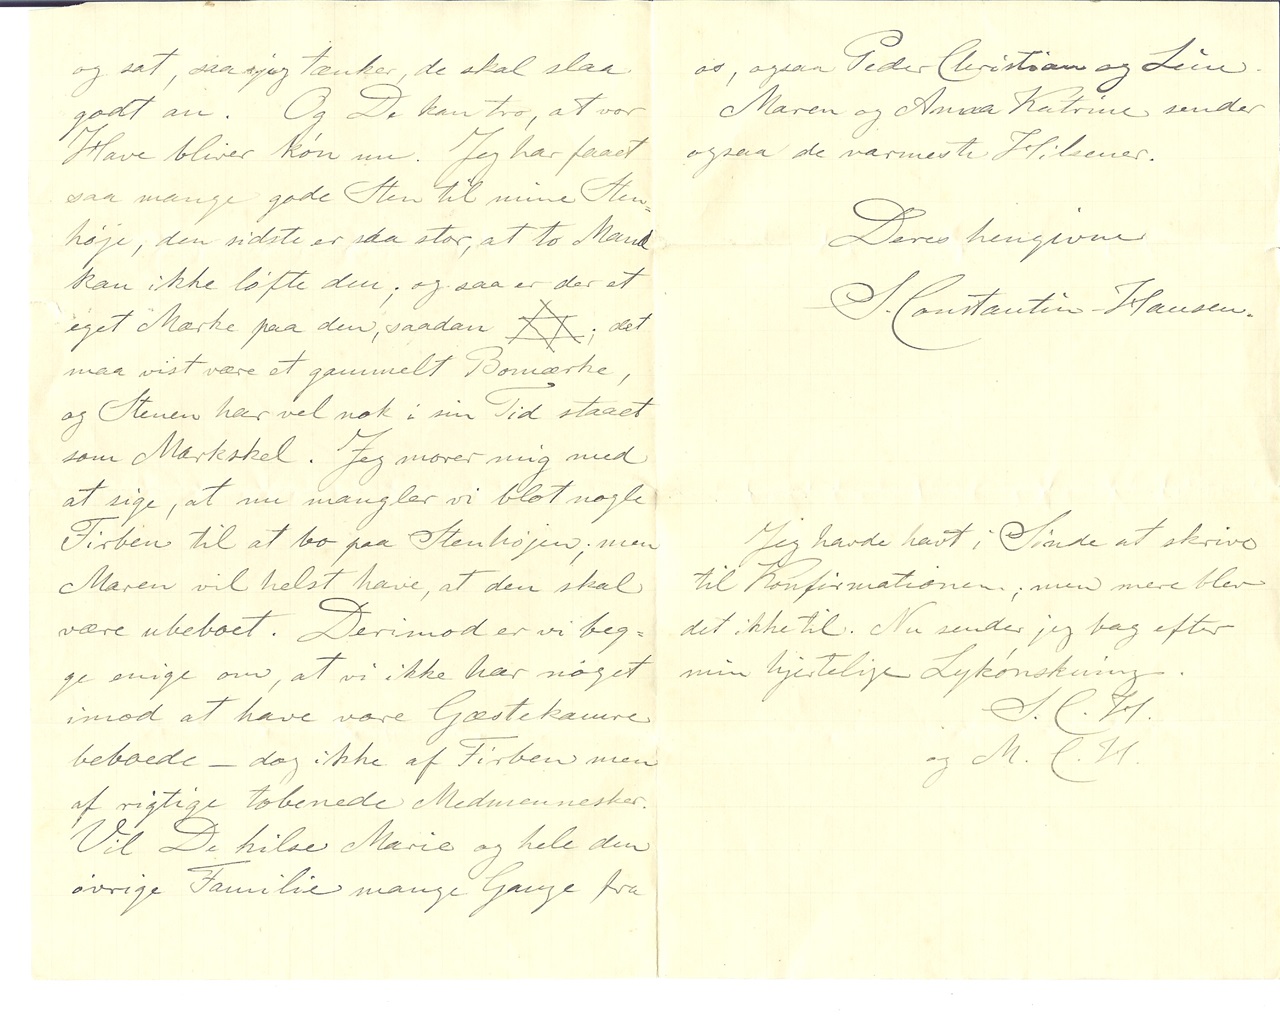 og sat, saa jeg tænker, de skal slaa
godt an. Og De kan tro, at vor
Have bliver køn nu. Jeg har faaet
saa mange gode Sten til mine Sten=
høje, den sidste er saa stor, at to Mand
kan ikke løfte den; og saa er der et
eget Mærke paa den, saadan ; det
maa vist være et gammelt Bomærke,
og Stenen har vel nok i sin Tid staaet
som Markskel. Jeg morer mig med
at sige, at nu mangler vi blot nogle
Firben til at bo paa Stenhøjen; men
Maren vil helst have, at den skal
være ubeboet. Derimod er vi beg=
ge enige om, at vi ikke har noget
imod at have vore Gæstekamre
beboede — dog ikke af Firben men
af rigtige tobenede Medmennesker.
Vil De hilse Marie og hele den
øvrige Familie mange Gange fra
os, ogsaa Peder Christian og Line.
Maren og Anna Katrine sender
ogsaa de varmeste Hilsener.
Deres hengivne
S. Constantin-Hansen.
Jeg havde havt i Sinde at skrive
til Konfirmationen; men mere blev
det ikke til. Nu sender jeg bag efter
min hjertelige Lykønskning.
S. C. H.
og M. C. H.